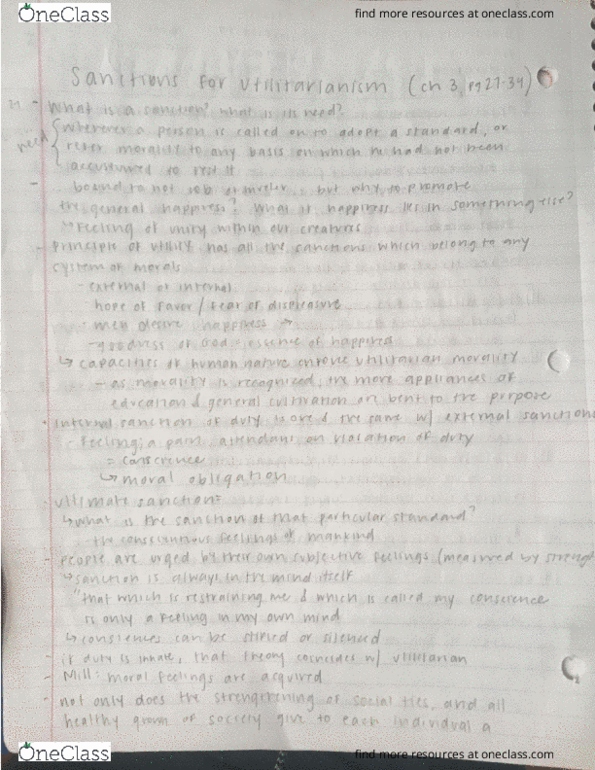 OneClass
find more resources at oneclass.com
Sanctions for Utilitarianism (ch 3, pg 27-34)
- What is a sanction? what is its need?
need { wherever a person is called on to adopt a standard, or
refer morality to any basis on which he had not been
accustomed to rest it
- bound to not rob or murder, but why to promote
the general happiness? What if happiness lies in something else?
↳ Feeling of unity within our creatures
- Principle of utility has all the sanctions which belong to any
system of morals
- external or internal
hope of favor / fear of displeasure
- men desire happiness →
- goodness of God = essence of happiness
↳ capacities of human nature utilitarian morality
- as morality is recognized, the more appliances of
education & general cultivation are bent to the purpose
• internal sanction of duty is one & the same w/ external sanctions
Feeling; a pain, attendant on violation of duty
= conscience
↳ moral obligation
- Ultimate sanction:
↳ what is the sanction of that particular standard?
the conscientious feelings of mankind
- People are urged by their own subjective feelings (measured by strength
↳ sanction is always in the mind itself
"that which is restraining me & which is called my conscience
is only a feeling in my own mind
↳ consiences can be stifled or silenced
- if duty is innate, that theory coincides w/ utilitarian
- Mill: moral feelings are acquired
- not only does the strengthening of social ties, and all
healthy grown of society give to each individual a
OneClass
find more resources at oneclass.com